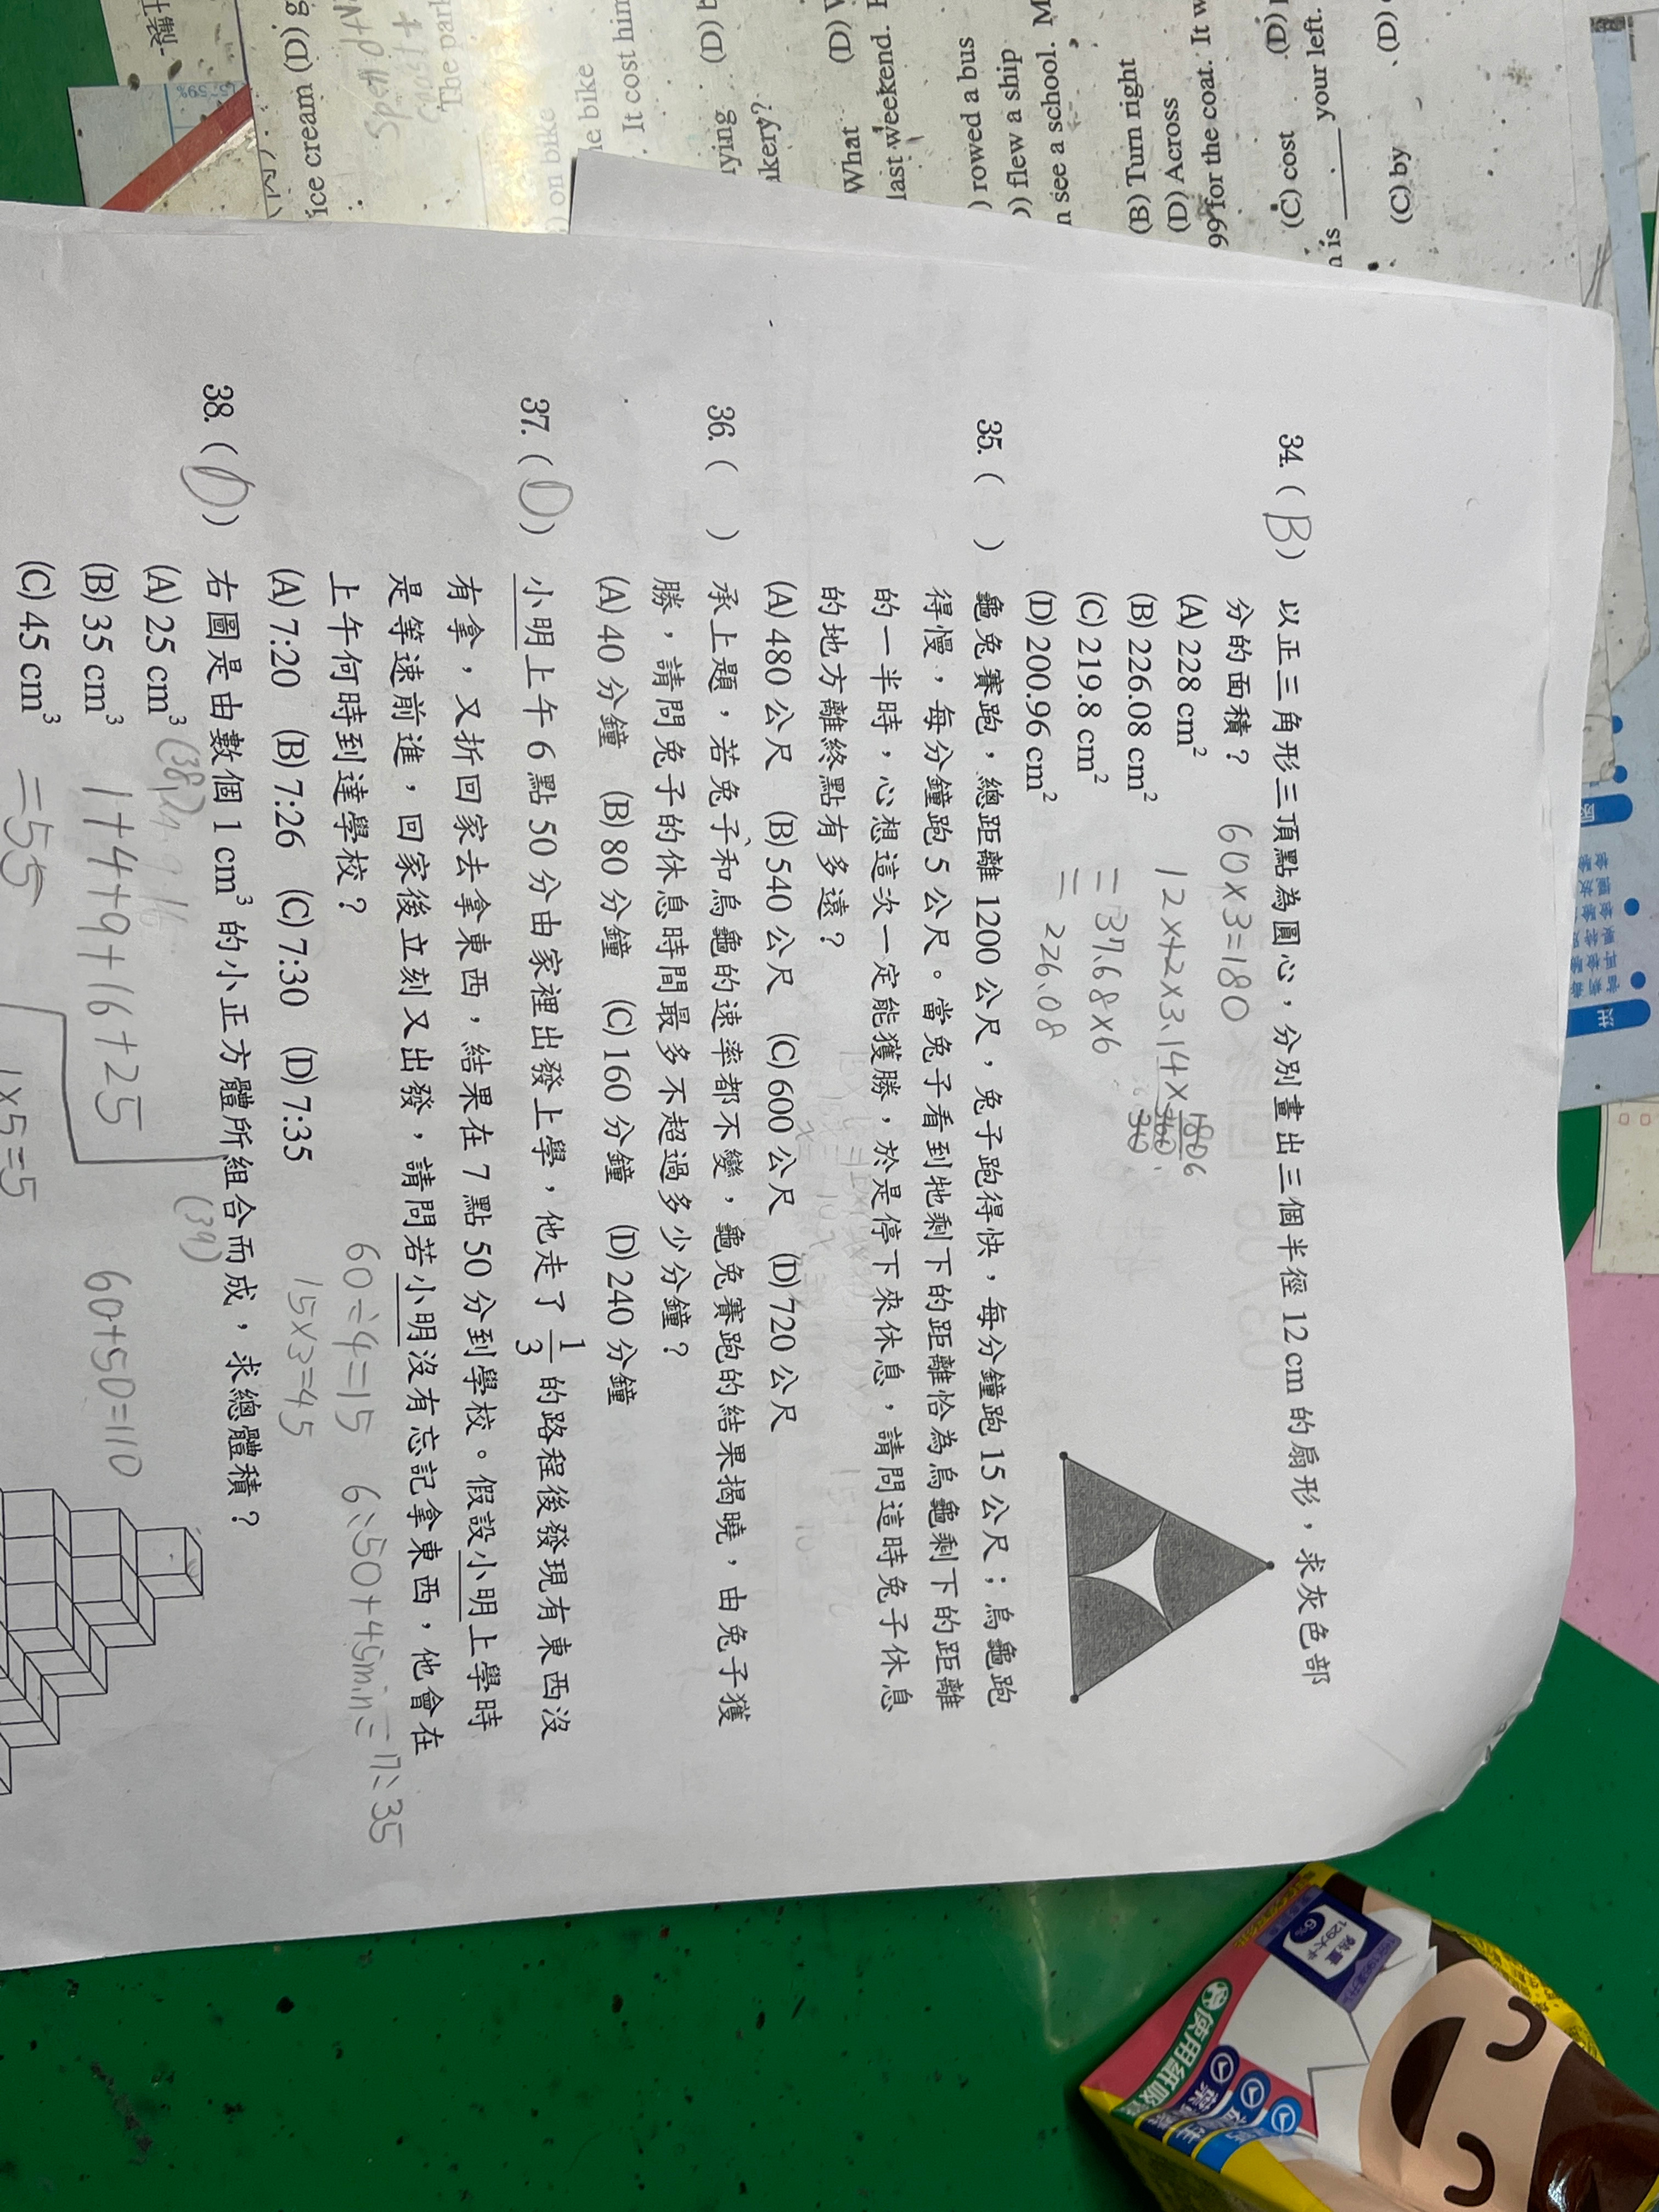 34. (B) 以正三角形三頂點為圓心，分別畫出三個半徑 12 cm 的扇形，求灰色部
分的面積？ 60×3=180
(A) 228 cm²
(B) 226.08 cm²
(C) 219.8 cm²
(D) 200.96 cm²
= 37.68×6
= 226.08
35. ( ) 龜兔賽跑，總距離 1200 公尺，兔子跑得快，每分鐘跑 15 公尺；烏龜跑
得慢，每分鐘跑 5 公尺。當兔子看到牠剩下的距離恰為烏龜剩下的距離
的一半時，心想這次一定能獲勝，於是停下來休息，請問這時兔子休息
的地方離終點有多遠？
(A) 480 公尺 (B) 540 公尺 (C) 600 公尺 (D) 720 公尺
36. ( ) 承上題，若兔子和烏龜的速率都不變，龜兔賽跑的結果揭曉，由兔子獲
勝，請問兔子的休息時間最多不超過多少分鐘？
(A) 40 分鐘 (B) 80 分鐘 (C) 160 分鐘 (D) 240 分鐘
37. (D) 小明上午 6 點 50 分由家裡出發上學，他走了 1/3 的路程後發現有東西沒
有拿，又折回家去拿東西，結果在 7 點 50 分到學校。假設小明上學時
是等速前進，回家後立刻又出發，請問若小明沒有忘記拿東西，他會在
上午何時到達學校？
60÷4=15 6:50+45min=7:35
15×3=45
(A) 7:20 (B) 7:26 (C) 7:30 (D) 7:35
38. (D) 右圖是由數個 1 cm³ 的小正方體所組合而成，求總體積？
(39)
(A) 25 cm³
(B) 35 cm³ 1+4+9+16+25
60+50=110
(C) 45 cm³ =55
1×5=5
ice cream (D) g
The parl
) on bike
ne bike
. It cost him
ying (D) b
akery?
What (D) V
last weekend.
) rowed a bus
) flew a ship
n see a school. M
(B) Turn right
(D) Across
99 for the coat. It w
(C) cost (D)
n is ____. your left.
(C) by (D)
使用紙吸管